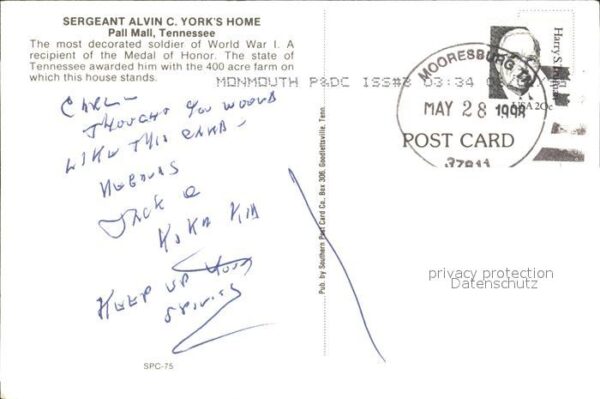 SERGEANT ALVIN C. YORK'S HOME
Pall Mall, Tennessee
The most decorated soldier of World War I. A
recipient of the Medal of Honor. The state of
Tennessee awarded him with the 400 acre farm on
which this house stands.
MONMOUTH P&DC ISS#2 03:34
CARL—
THOUGHT YOU WOULD
LIKE THIS CARD—
JACK &
KEEP UP YOUR
SPIRITS
SPC-75
Pub. by Southern Post Card Co., Box 306, Goodlettsville, Tenn.
Harry S. Truman
USA 20c
MOORESBURG TN
MAY 28 1998
POST CARD
37811
privacy protection
Datenschutz